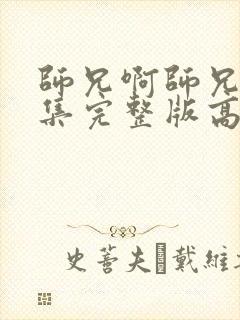 師兄啊師兄
集完整版高
史蒂夫·戴維